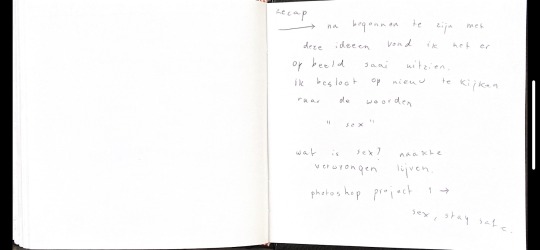 recap
→ na begonnen te zijn met
deze ideeen vond ik het er
op beeld saai uitzien.
ik besloot op nieuw te kijken
naar de woorden
"sex"
wat is sex? naakte
verwrongen lijven.
photoshop project 1 →
sex, stay safe.